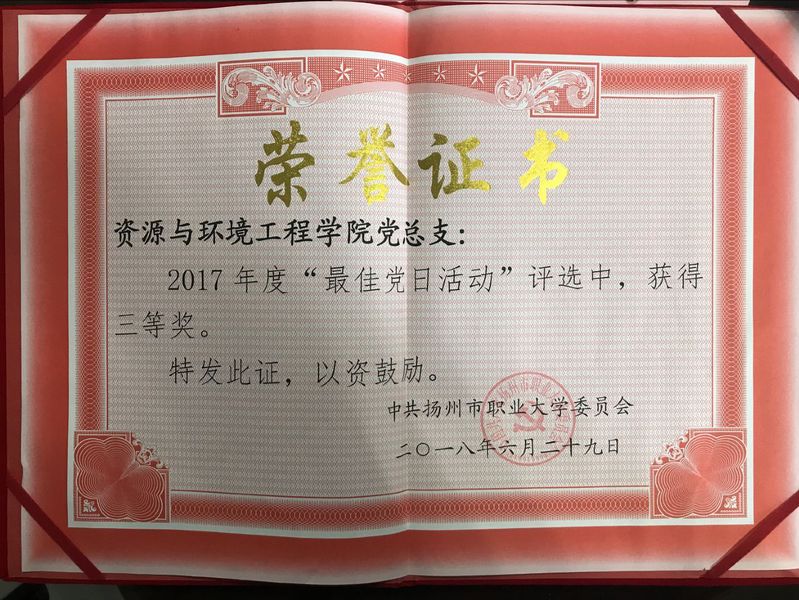 荣誉证书
资源与环境工程学院党总支：
2017年度“最佳党日活动”评选中，获得
三等奖。
特发此证，以资鼓励。
中共扬州市职业大学委员会
二〇一八年六月二十九日